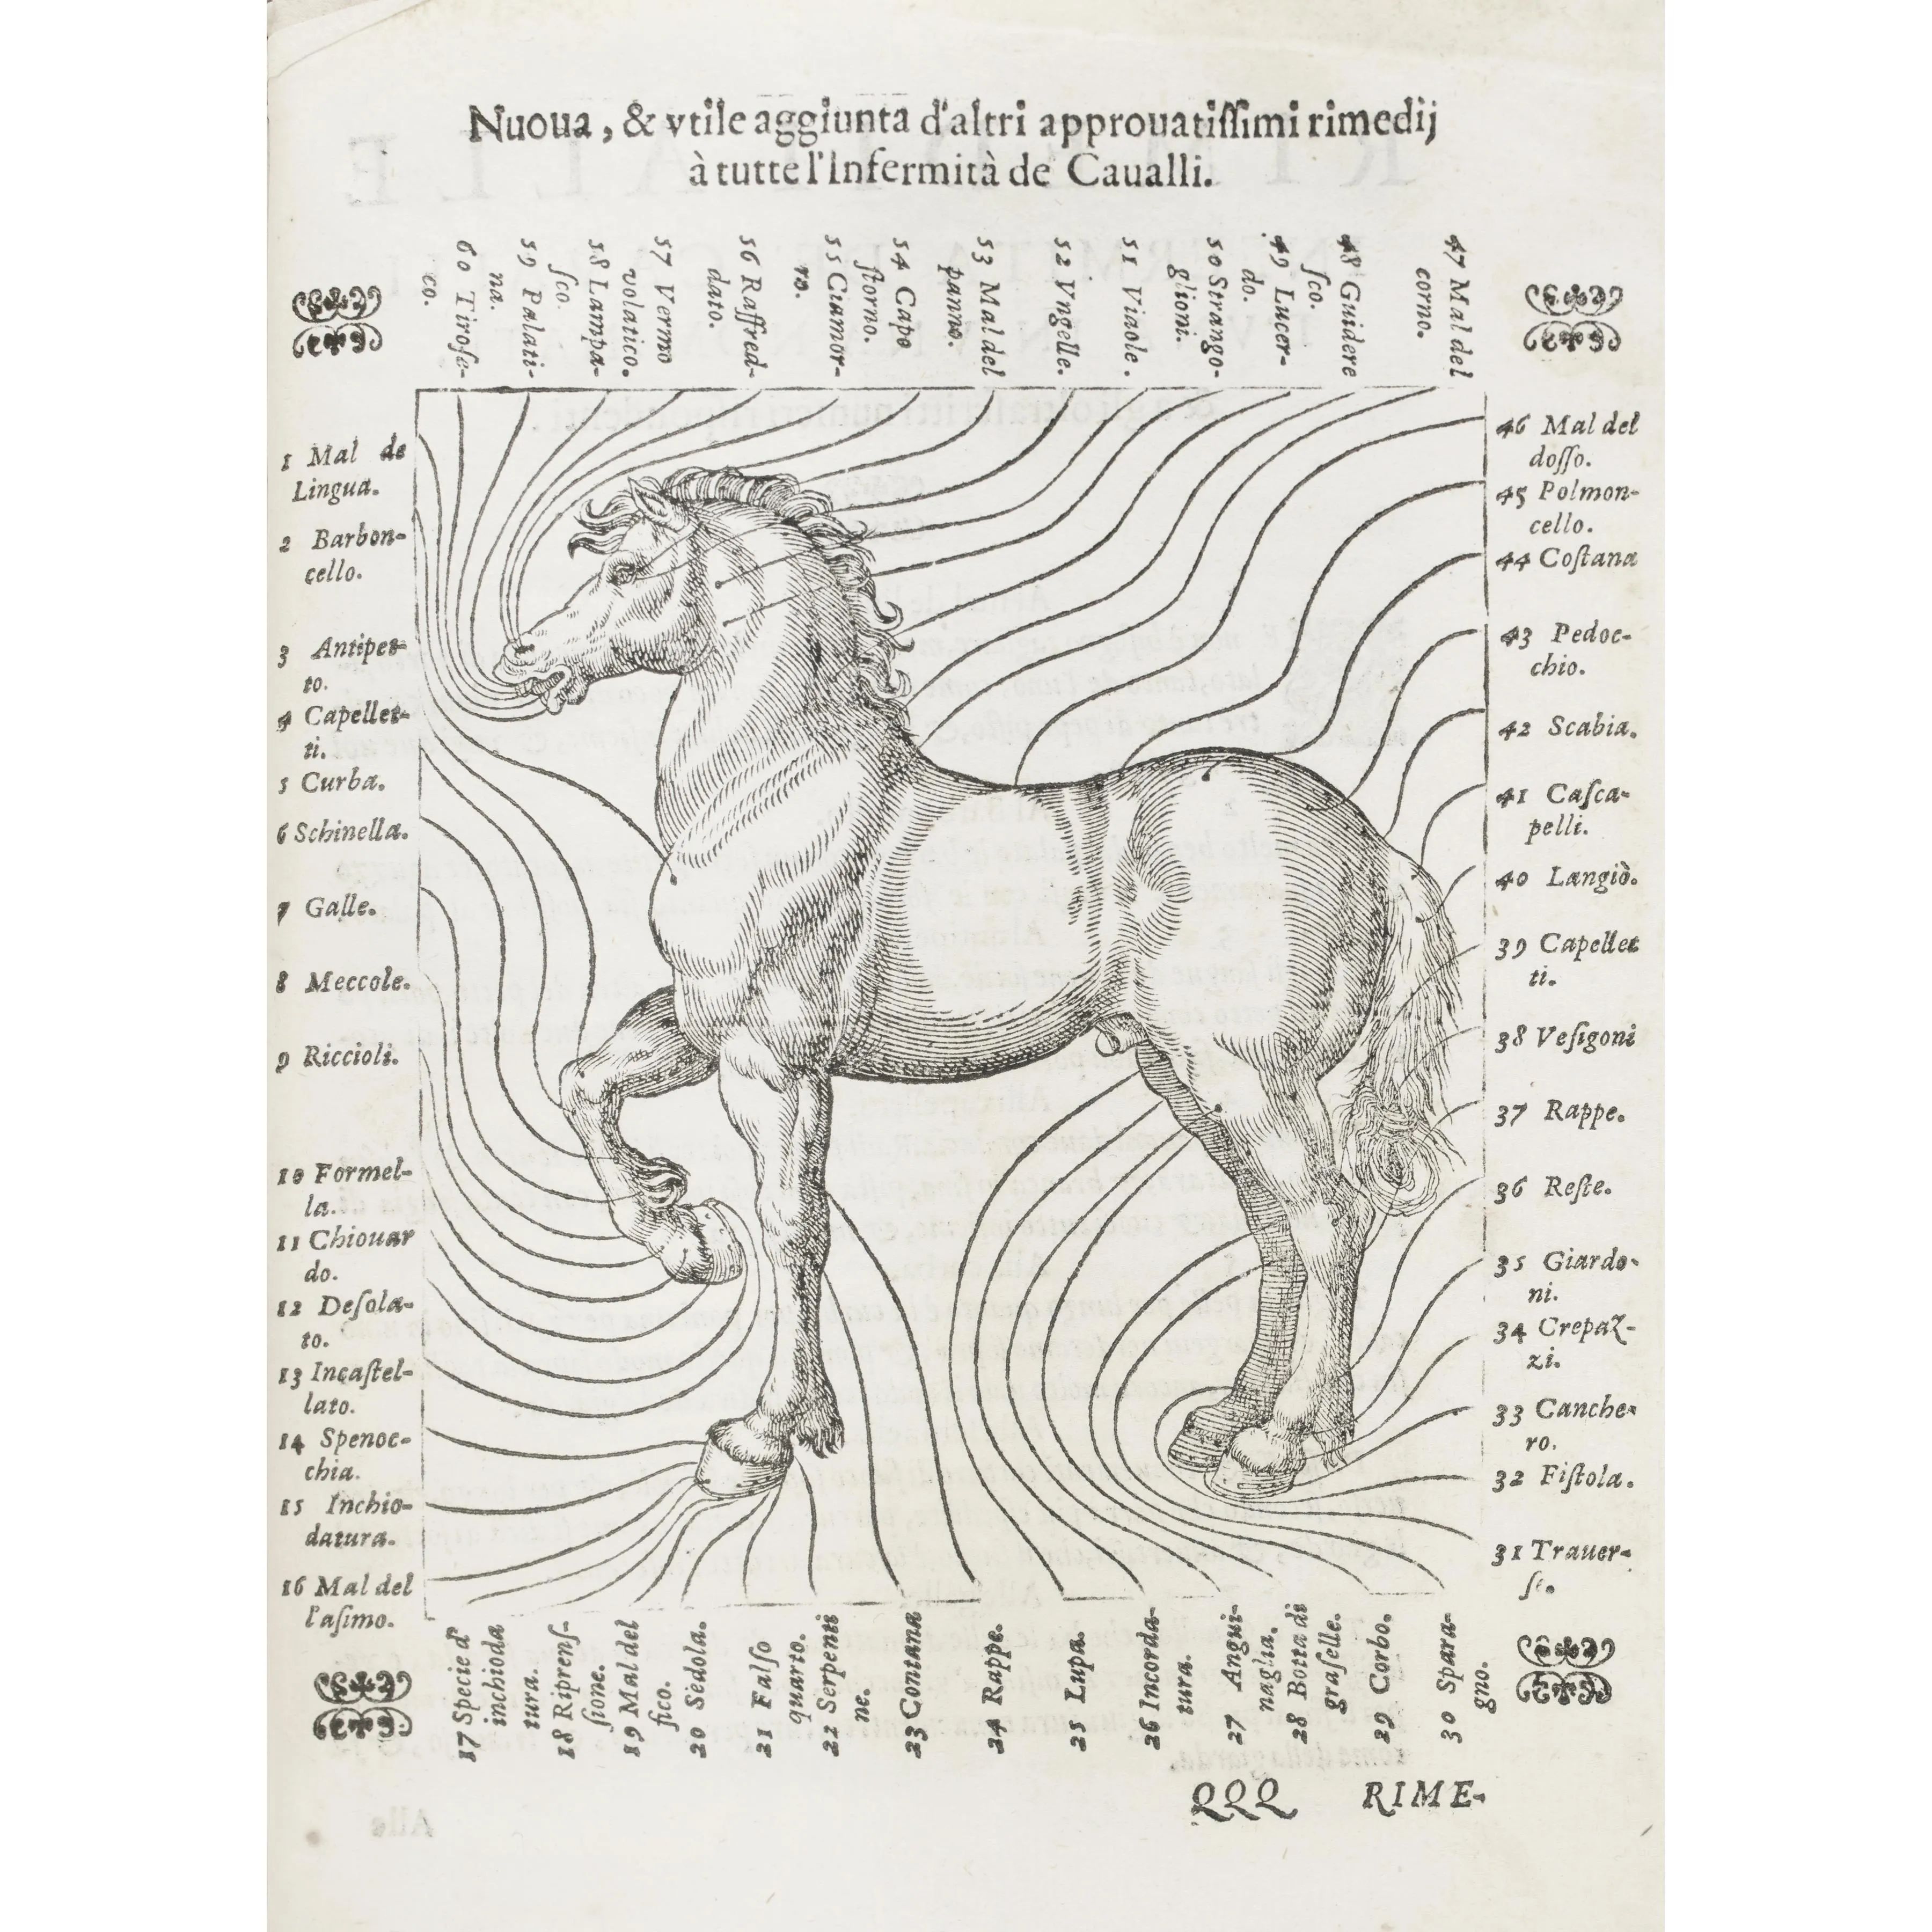 Nuoua, & vtile aggiunta d'altri approuatiſſimi rimedij
à tutte l'Infermità de Caualli.
60 Tiroſe-
co.
59 Palati-
na.
58 Lampa-
ſco.
57 Vermo
volatico.
56 Raffred-
dato.
55 Ciamor-
ro.
54 Capo
ſtorno.
53 Mal del
panno.
52 Vngelle.
51 Viuole.
50 Strango-
glioni.
49 Lucer-
do.
48 Guidere
ſco.
47 Mal del
corno.
1 Mal de
Lingua.
2 Barbon-
cello.
3 Antipet-
to.
4 Capellet-
ti.
5 Curba.
6 Schinella.
7 Galle.
8 Meccole.
9 Riccioli.
10 Formel-
la.
11 Chiouar
do.
12 Deſola-
to.
13 Incaſtel-
lato.
14 Spenoc-
chia.
15 Inchio-
datura.
16 Mal del
l'aſimo.
46 Mal del
doſſo.
45 Polmon-
cello.
44 Coſtana
43 Pedoc-
chio.
42 Scabia.
41 Caſca-
pelli.
40 Langiò.
39 Capellet
ti.
38 Veſigoni
37 Rappe.
36 Reſte.
35 Giardo-
ni.
34 Crepaz-
zi.
33 Canche-
ro.
32 Fiſtola.
31 Trauer-
ſe.
17 Specie d'
inchioda
tura.
18 Riprenſ-
ſione.
19 Mal del
fico.
20 Sèdola.
21 Falſo
quarto.
22 Serpenti
ne.
23 Contana
24 Rappe.
25 Lupa.
26 Incorda-
tura.
27 Angui-
naglia.
28 Botta di
graſelle.
29 Corbo.
30 Spara-
gno.
QQQ RIME-